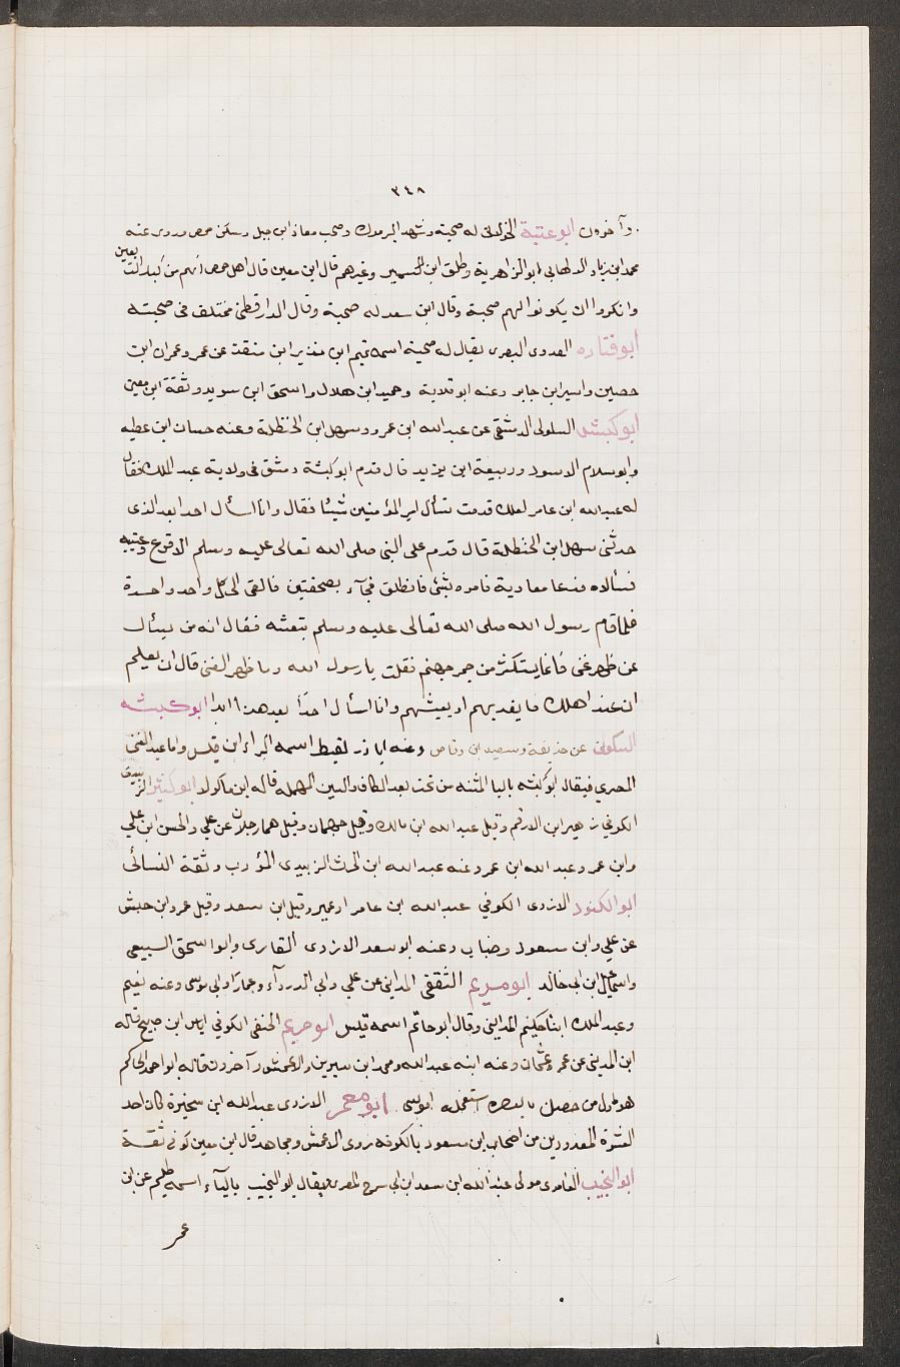 ٣٤٨
وآخرون ابو عتبة الخولانى له صحبة وشهد اليرموك وصحب معاذ ابن جبل وسكن حمص وروى عنه
محمد ابن زياد الالهانى ابو الزاهرية وطلق ابن السمير وغيرهم قال ابن معين قال اهل حمص انهم من كبار التابعين
وانكروا ان يكونوا لهم صحبة وقال ابن سعد له صحبة وقال الدارقطنى مختلف فى صحبته
ابو قتاده العدوى البصرى يقال له صحبة اسمه تميم ابن منذير ابن منقذ عن عمر وعمران ابن
حصين واسير ابن جابر وعنه ابو قلابة وحميد ابن هلال واسحق ابن سويد وثقة ابن معين
ابو كبشه السلولى الدمشقى عن عبد الله ابن عمرو وسهل ابن الحنظلة وعنه حسان ابن عطيه
وابو سلام الاسود وربيعة ابن يزيد قال قدم ابو كبشة دمشق فى ولاية عبد الملك فقال
له عبد الله ابن عامر لعلك قدمت تسأل امير المؤمنين شيئا فقال وانا اسأل احدا بعد الذى
حدثنى سهل ابن الحنظلة قال قدم على النبى صلى الله تعالى عليه وسلم الاقرع وعتيبه
فسألاه فدعا معاوية فامره بشئ فانطلق فجآء بصحفتين فالقى الى كل واحد واحدة
فلما قام رسول الله صلى الله تعالى عليه وسلم تبعته فقال انه من يسأل
عن ظهر غنى فانما يستكثر من جمر جهنم فقلت يا رسول الله وما ظهر الغنى قال ان يعلم
ان عند اهلك ما يغديهم او يعشيهم وانا اسأل احدًا بعد هذا ابدا ابو كبشه
السكونى عن حذيفة وسعد ابن وقاص وعنه اياد ابن لقيط اسمه البراء ابن قيس واما عبد الغنى
المصري فيقال ابو كيسه باليا المثناة من تحت بعد الكاف والسين المهملة قاله ابن ماكولا ابو كثير الزبيدى
الكوفي زهير ابن الاقمر وقيل عبد الله ابن مالك وقيل جمهان وقيل هما رجلان عن علي والحسن ابن علي
وابن عمر وعبد الله ابن عمر وعنه عبد الله ابن الحرث الزبيدى المؤدب وثقة النسائى
ابو الكنود الازدى الكوفي عبد الله ابن عامر او عمير وقيل ابن سعد وقيل عمرو ابن حبش
عن علي وابن مسعود وخباب وعنه ابو سعد الازدى القارى وابو اسحق السبيعى
واسمعيل ابن ابى خالد ابو مريم الثقفى المداينى عن علي وابى الدردآء وعمار وابى موسى وعنه نعيم
وعبد الملك ابنا حكيم المداينى وقال ابو حاتم اسمه قيس ابو مريم الحنفى الكوفي اياس ابن صبيح قاله
ابن المدينى عن عمر وعثمان وعنه ابنه عبد الله ومحمد ابن سيرين والاعمش وآخرون قاله ابو احمد الحاكم
هو اول من حصل بالبصره استعمله ابو موسى ابو معمر الازدى عبد الله ابن سخبرة كان احد
العشرة المعدودين من اصحاب ابن مسعود بالكوفه روى الاعمش ومجاهد قال ابن معين كوفى ثقة
ابو النجيب العامرى مولى عبد الله ابن سعد ابن ابى سرح المصرى ويقال ابو التجيب بالتآء اسمه ظليم عن ابن
عمر